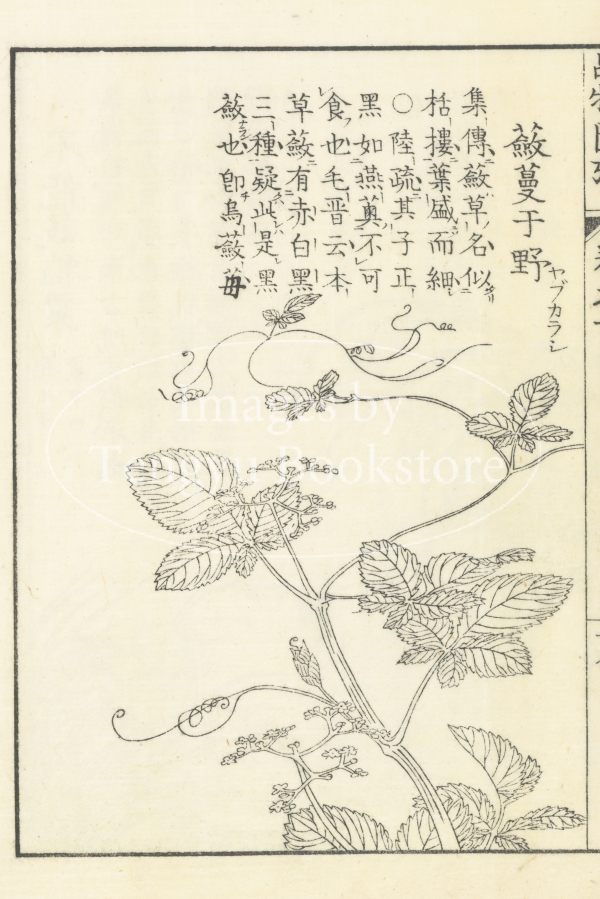 蘞蔓于野
ヤブカラシ
集傳蘞草名似
栝摟葉盛而細
○陸疏其子正
黑如燕薁不可
食也毛晉云本
草蘞有赤白黑
三種疑此是黑
蘞也卽烏蘞苺
Images by
Tengyu Bookstore